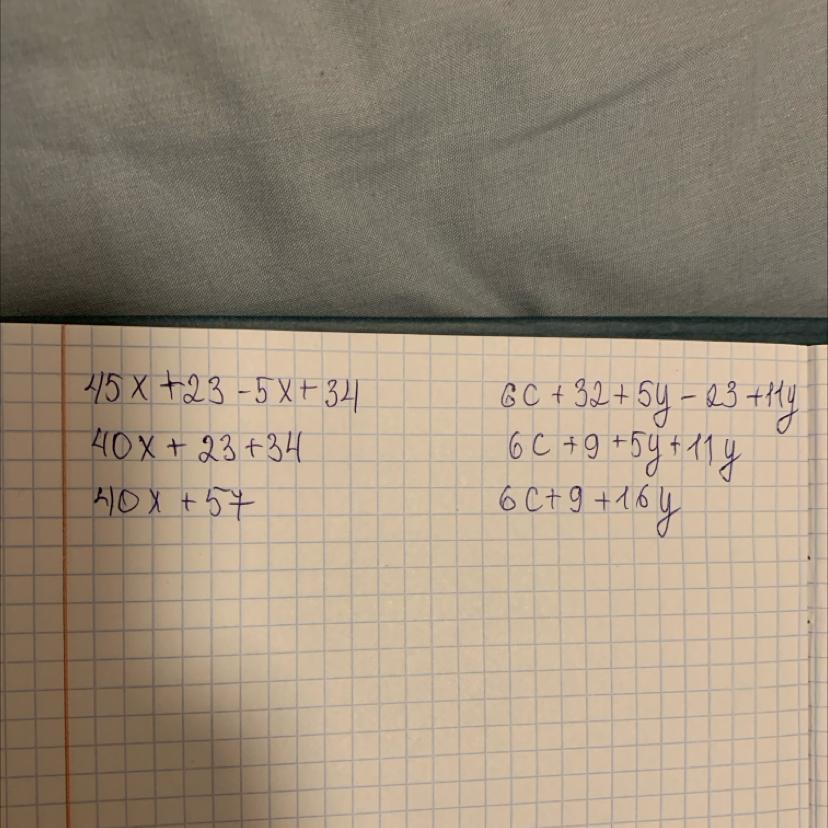 45x + 23 - 5x + 34
40x + 23 + 34
40x + 57
6c + 32 + 5y - 23 + 11y
6c + 9 + 5y + 11y
6c + 9 + 16y